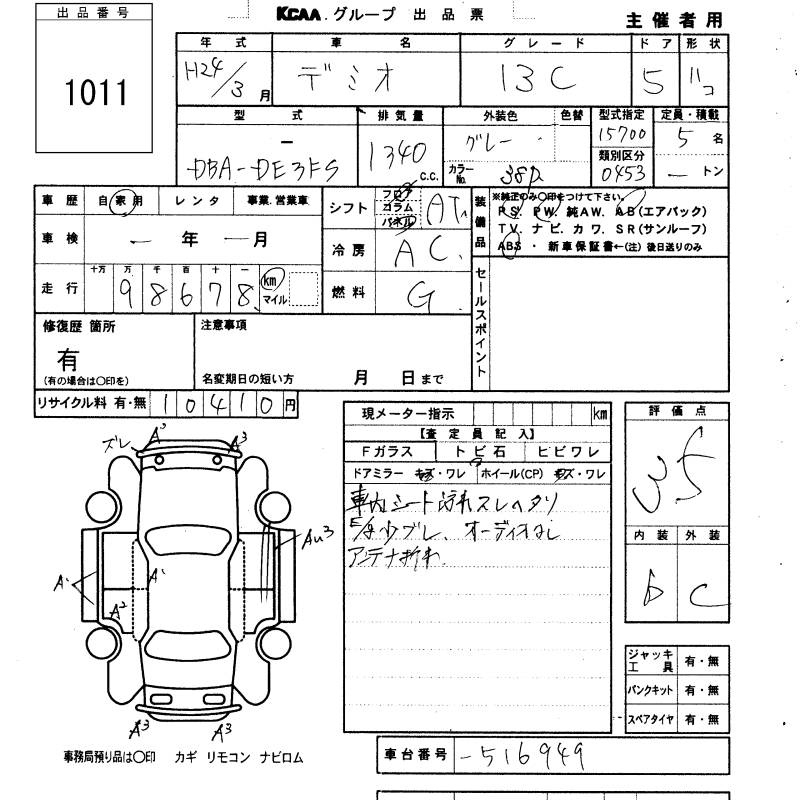 出品番号
1011
KCAA.グループ 出品票
主催者用
年式 車名 グレード ドア 形状
H24/3月 デミオ 13C 5 ハコ
型式 排気量 外装色 色替 型式指定 定員・積載
- DBA-DE3FS 1340 C.C. グレー 15700 5名
カラーNo. 38P 類別区分 0453 - トン
車歴 自家用 レンタ 事業.営業車
車検 - 年 - 月
走行 十万 万 千 百 十 一
98678 km マイル
シフト フロア コラム パネル AT
冷房 AC
燃料 G
装備品
※純正のみ○印をつけて下さい。
PS. PW. 純AW. AB(エアバック)
TV. ナビ. カワ. SR(サンルーフ)
ABS ・ 新車保証書←(注)後日送りのみ
セールスポイント
修復歴 箇所
有
(有の場合は○印を)
注意事項
名変期日の短い方 月 日まで
リサイクル料 有・無 10410円
現メーター指示 km
【査定員記入】
Fガラス トビ石 ヒビワレ
ドアミラー キズ・ワレ ホイール(CP) キズ・ワレ
車内シート汚れスレヘタリ
E/g少ブレ、オーディオなし
アンテナ折れ
評価点
3.5
内装 外装
b C
ジャッキ工具 有・無
パンクキット 有・無
スペアタイヤ 有・無
ズレ A3 A3
Au3
A1 A1
A2
A3 A3
事務局預り品は○印 カギ リモコン ナビロム
車台番号 -516949